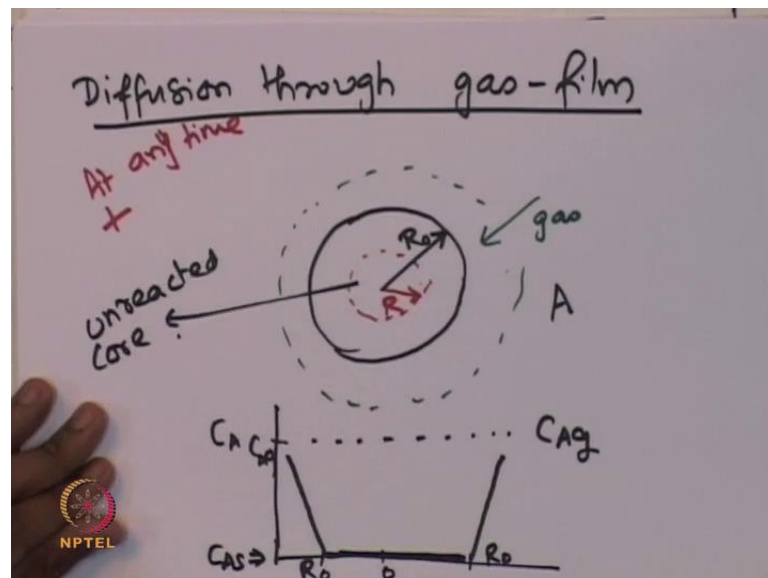 Diffusion through gas-film
At any time
t
gas
R0
R
A
unreacted
core.
CA
CAg
CAS ⇒
R0
0
R0
NPTEL